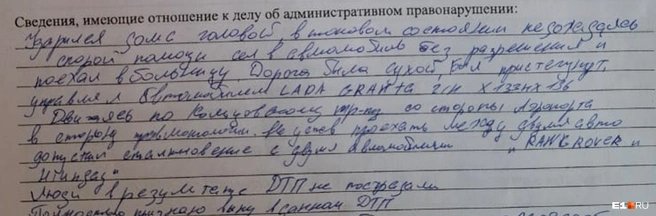 Сведения, имеющие отношение к делу об административном правонарушении:
Ударился дома головой, в таковом состоянии не дождавшись
скорой помощи сел в автомобиль без разрешения и
поехал в больницу Дорога была сухой, был пристегнут,
управлял автомобилем LADA GRANTA
Двигаясь по Кольцовскому со стороны Аэропорта
в сторону Не успев проехать между двумя авто
допустил столкновение с двумя автомобилями "RANG ROVER и
Люди в результате ДТП не пострадали
Полностью признаю вину в данном ДТП
E1.RU